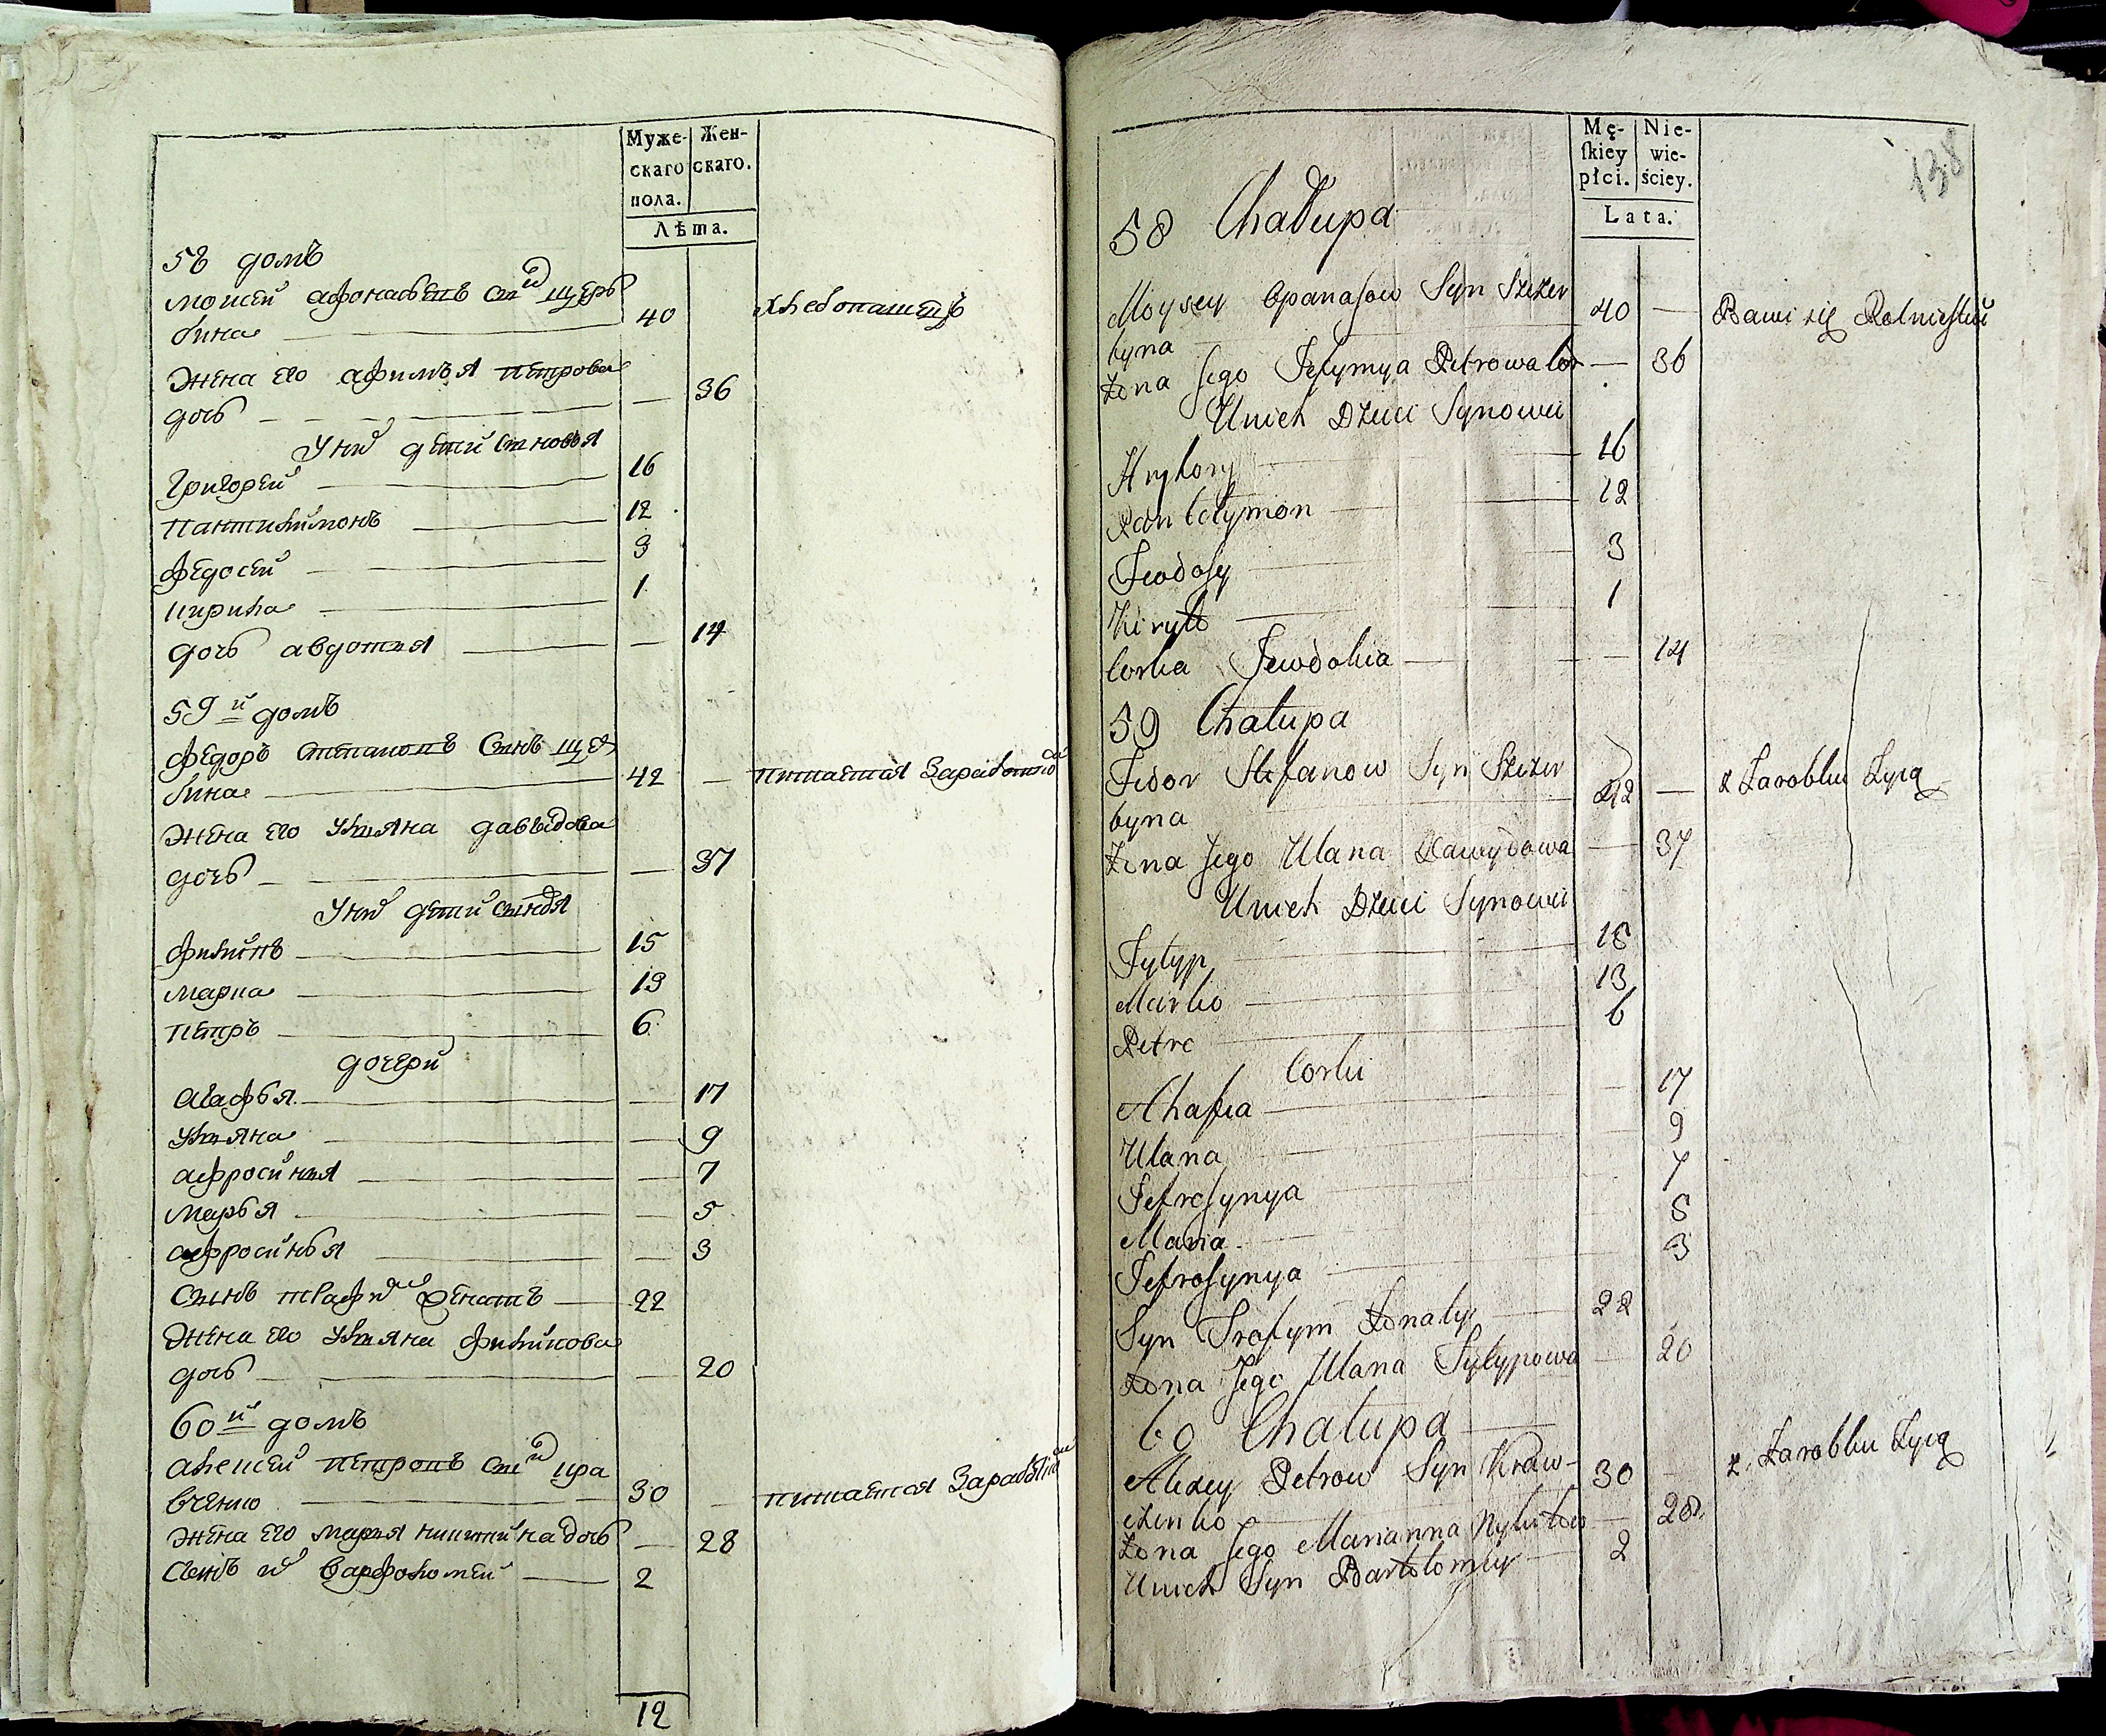 Муже-
скаго
пола.
Жен-
скаго.
Лѣта.
58 домъ
мошей афонасьевъ сынъ щерь
бина 40 хлебопашецъ
жена его афимья петрова
дочь — 36
У них дети сыновья
Григорей 16
Пантилимонъ 12
Федосей 3
Кирила 1
дочь авдотия — 14
59й домъ
Федоръ степановъ сынъ щер
бина 42 — питается Заработкой
жена его Ульяна давыдова
дочь — 37
У них дети сыновья
Филипъ 15
марка 13
петръ 6
дочери
агафья — 17
Ульяна — 9
афросиния — 7
марья — 5
афросинья — 3
сынъ женатъ 22
жена его Ульяна филипова
дочь — 20
60й домъ
алексей петровъ сынъ кра
вченко 30 — питается Заработкой
жена его мария никитина дочь — 28
Сынъ их варфоломей 2
12
Mę-
skiey
płci.
Nie-
wie-
ściey.
Lata.
138
58 Chałupa
Moysey Opanasow Syn Szczer
byna 40 — Bawi się Rolnictwem
Zona Jego Jefymya Petrowa Cor — 36
Unich Dzieci Synowie
Hryhory 16
Pantelymon 12
Feodosy 3
Kiryło 1
Corka Jewdokia — 14
59 Chałupa
Fedor Stefanow Syn Szczer
byna 42 — z Zarobku Zyią
Zona Jego Ulana Dawydowa — 37
Unich Dzieci Synowie
Fylyp 15
Marko 13
Petro 6
Corki
Ahafia — 17
Ulana 9
Jefrosynya 7
Maria 5
Jefrosynya 3
Syn Trofym Zonaty 22
Zona Jego Ulana Fylypowa — 20
60 Chałupa
Alexey Petrow Syn Kraw-
czenko 30 — z Zarobku Zyią
Zona Jego Marianna Nykitow — 28
Unich Syn Bartołomey 2